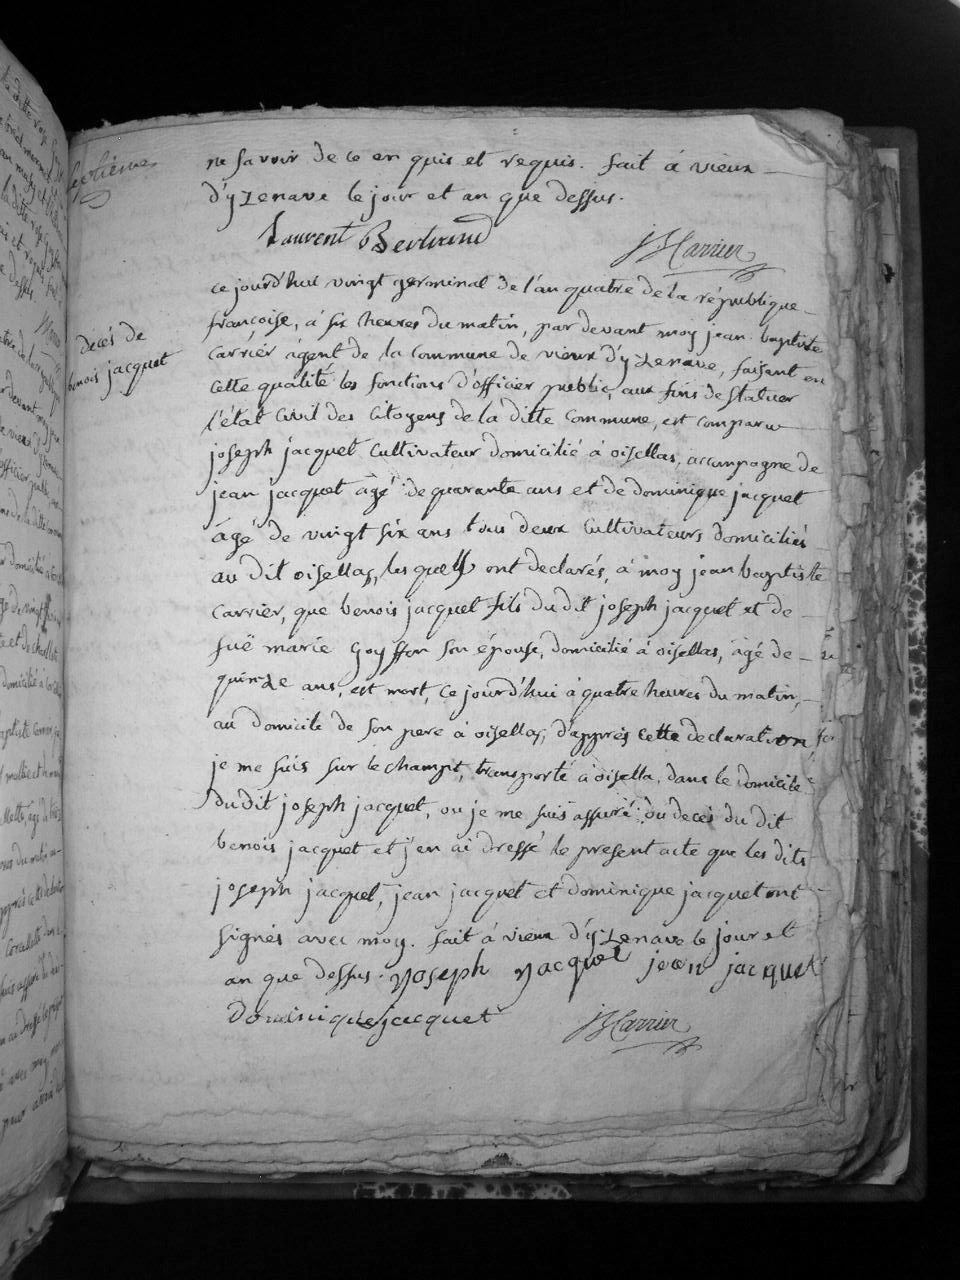 ne savoir de ce en quis et requis. fait á vieux
d'yzenave le jour et an que dessus.
Laurent Bertrand
JBCarrier
décés de
benois jacquet
ce jourd'hui vingt germinal de l'an quatre de la république
françoise, á six heures du matin, par devant moy jean baptiste
carriér ágent de la commune de vieux d'yzenave, faisant en
cette qualité les fonctions d'officier public, aux fins de statuer
l'état civil des citoyens de la ditte commune, est comparu
joseph jacquet cultivateur domicilié á oisellas, accompagne de
jean jacquet âgé de quarante ans et de dominique jacquet
ágé de vingt six ans tous deux cultivateurs domiciliés
au dit oisellas, les quells ont declarés, á moy jean baptiste
carriér, que benois jacquet fils du dit joseph jacquet et de
fuë marie goyffon son épouse, domicilié á oisellas, ágé de
quinze ans, est mort, ce jourd'hui á quatre heures du matin,
au domicile de son pere á oisellas, d'apprés cette declaration,
je me suis sur le champt, transporté á oisella, dans le domicile
du dit joseph jacquet, ou je me suis assuré ou decés du dit
benois jacquet et j'en ai dressé le present acte que les dits
joseph jacquet, jean jacquet et dominique jacquet ont
signés avec moy. fait á vieux d'yzenave le jour et
an que dessus. yoseph yacquet jean jacquet
dominique jacquet JBCarrier